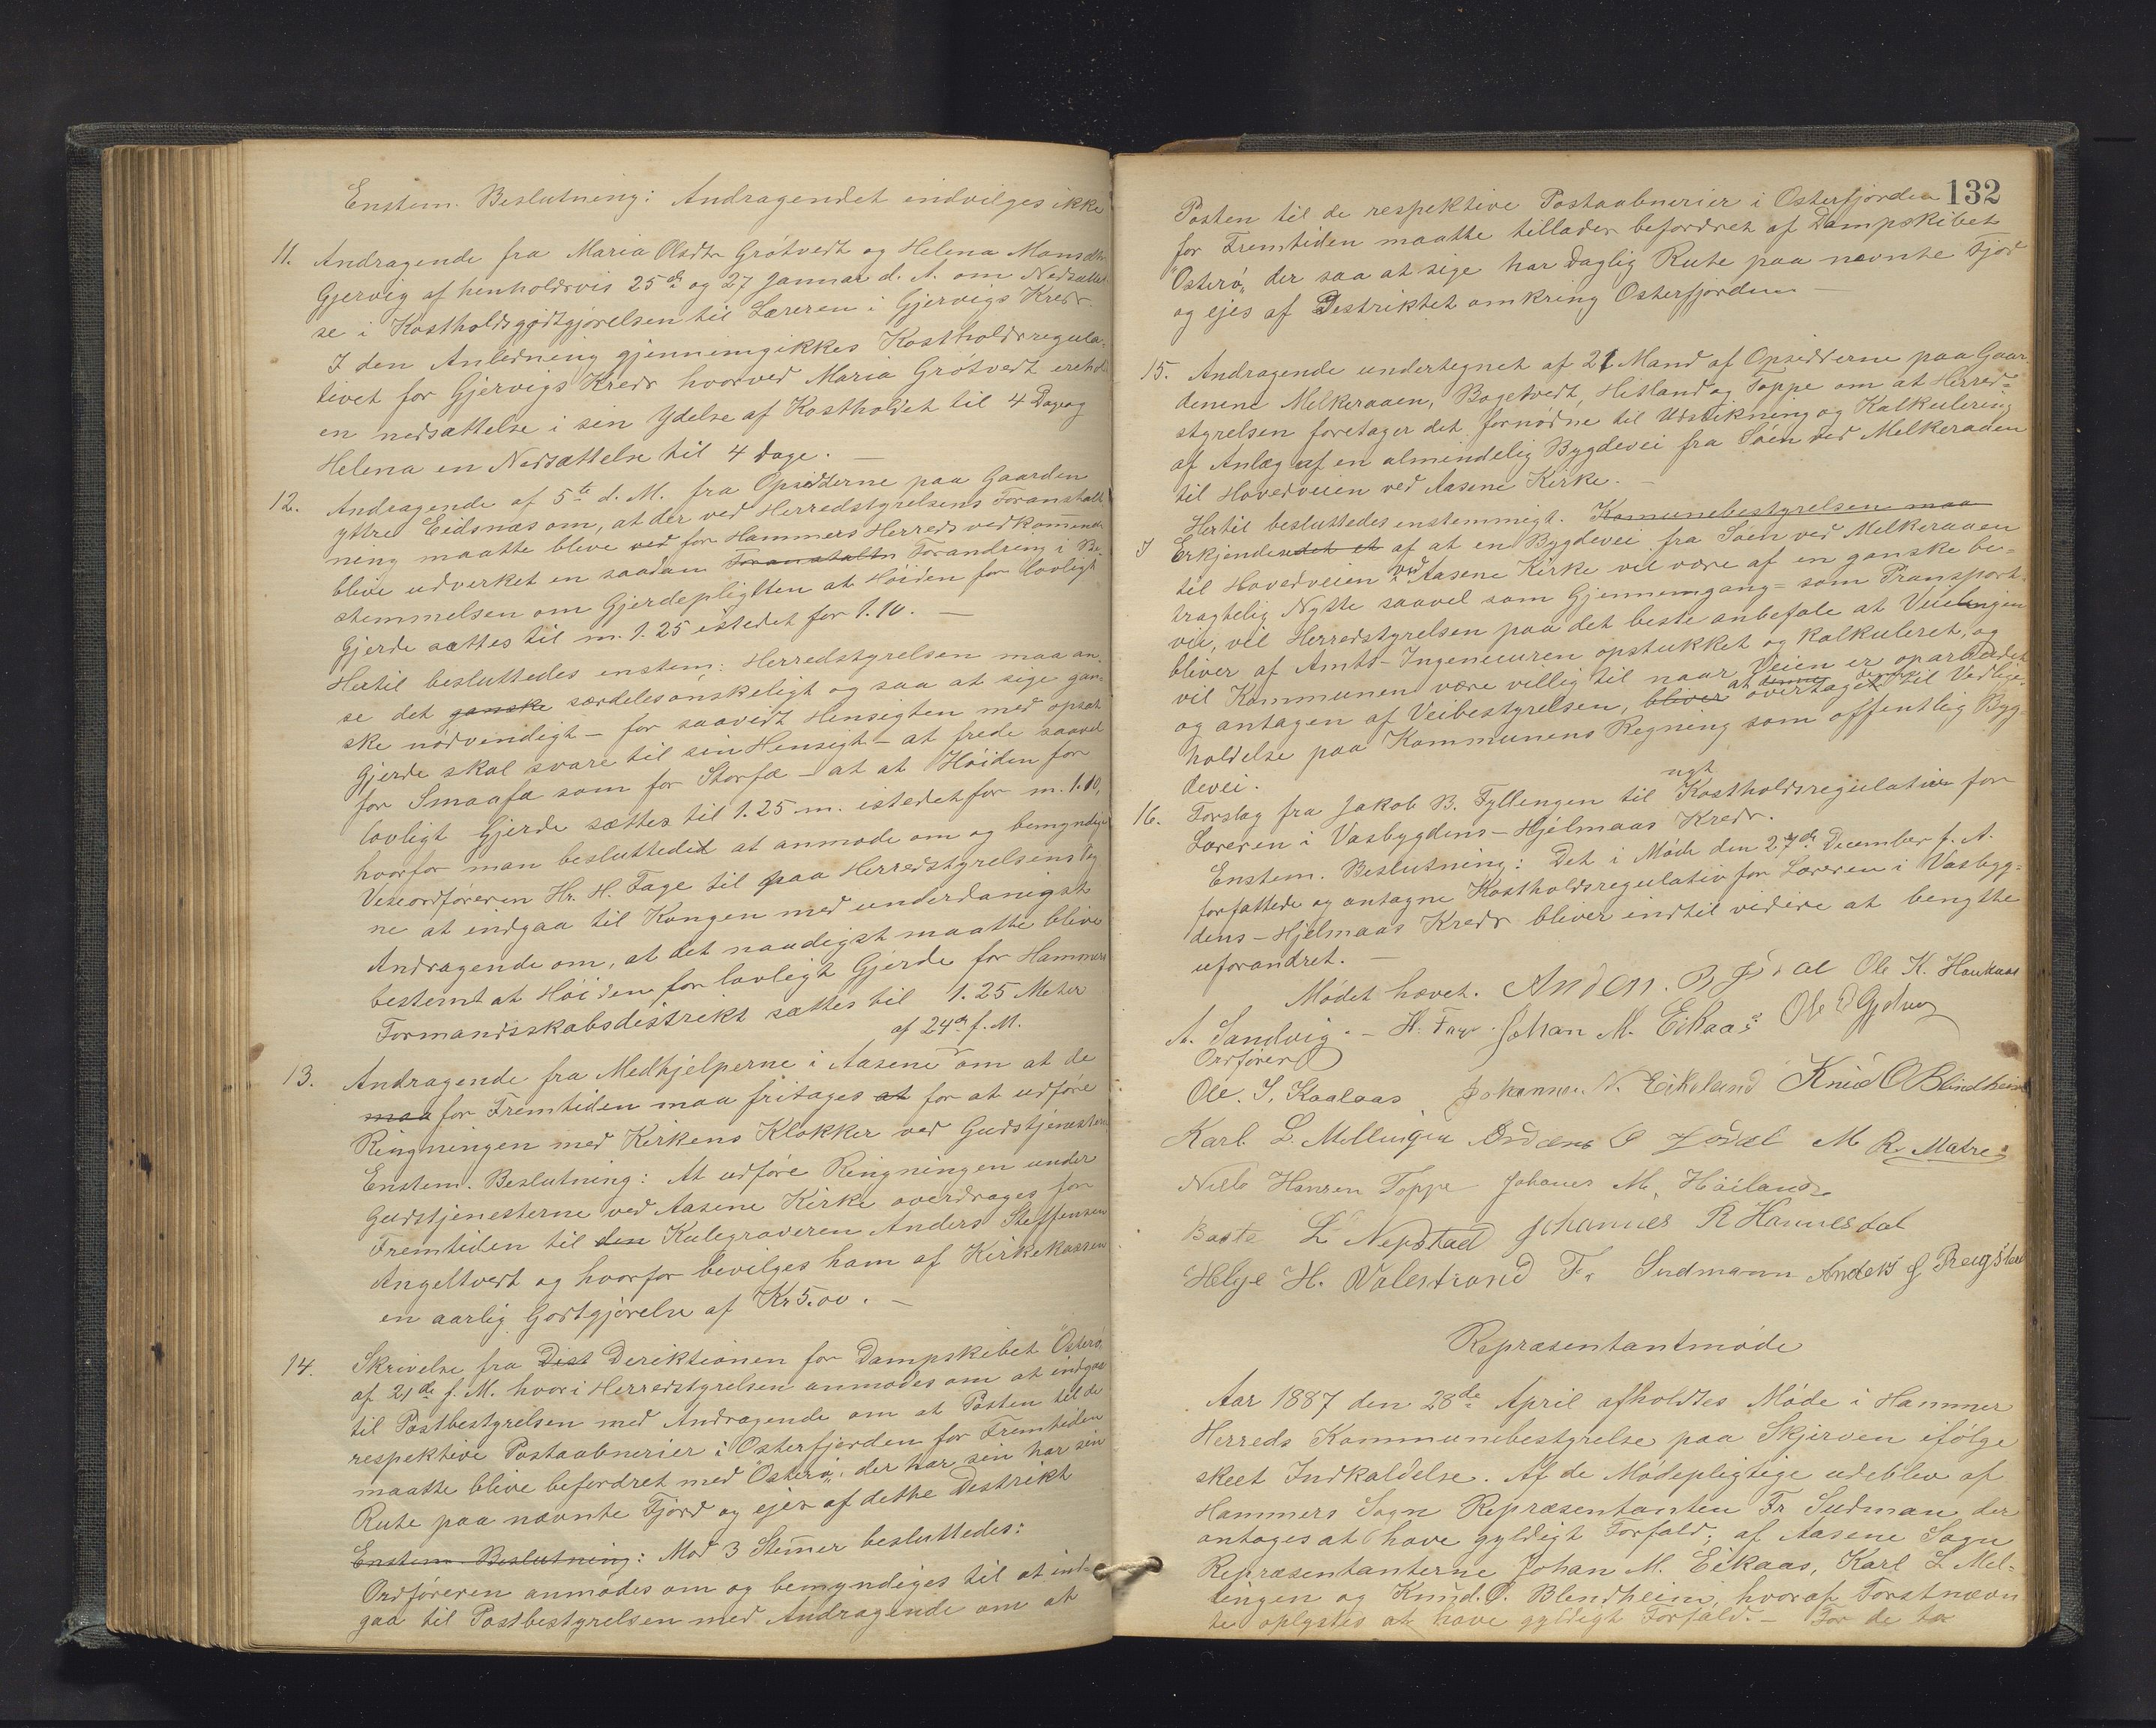 Enstem. Beslutning: Andragendet indvilges ikke
11. Andragende fra Maria Olsdtr Grótvedt og Helena Monsdtr
Gjervig af henholdsvis 25de og 27 Januar d. A. om Nedsættel-
se i Kostholdsgodtgjórelsen til Læreren i Gjervigs Kreds.
I den Anledning gjennemgikkes Kostholdsregula-
tivet for Gjervigs Kreds hvorved Maria Grótvedt erholdt
en nedsættelse i sin Ydelse af Kostholdet til 4 Dage og
Helena en Nedsættelse til 4 Dage. —
12. Andragende af 5te d. M. fra Opsidderne paa Gaarden
yttre Eidsnæs om, at der ved Herredstyrelsens Foranstalt-
ning maatte blive ved for Hammers Herreds vedkommende
blive udverket en saadan Foranstaltn Forandring i Be-
stemmelsen om Gjerdepligten at Hóiden for lovligt
Gjerde sættes til m. 1.25 istedet for 1.10. —
Hertil besluttedes enstem: Herredstyrelsen maa an-
se det ganske særdeles ónskeligt og saa at sige gan-
ske nódvendigt — for saavidt Hensigten med opsat
Gjerde skal svare til sin Hensigt — at frede saavel
for Smaafæ som for Storfæ — at at Hóiden for
lovligt Gjerde sættes til 1.25 m. istedet for m. 1.10,
hvorfor man besluttedet at anmode om og bemyndige
Viseordfóreren Hr. H. Fage til paa Herredstyrelsens Veg-
ne at indgaa til Kongen med underdanigst
Andragende om, at det naadigst maatte blive
bestemt at Hóiden for lovligt Gjerde for Hammers
Formandsskabsdistrikt sættes til 1.25 Meter
af 24de f. M.
13. Andragende fra Medhjelperne i Aasene om at de
maa for Fremtiden maa fritages at for at udfóre
Ringningen med Kirkens Klokker ved Gudstjenesterne
Enstem. Beslutning: At udfóre Ringningen under
Gudstjenesterne ved Aasene Kirke overdrages for
Fremtiden til den Kulegraveren Anders Steffensen
Angeltvert og hvorfor bevilges ham af Kirkekassen
en aarlig Godtgjórelse af Kr 5.00. —
14. Skrivelse fra Dist Deriktionen for Dampskibet "Osteró"
af 21de f. M. hvori Herredstyrelsen anmodes om at indgaa
til Postbestyrelsen med Andragende om at Posten til de
respektive Postaabnerier i Osterfjorden for Fremtiden
maatte blive befordret med "Osteró", der har sin har sin
Rute paa nævnte Fjord og ejes af dette Destrikt
Enstem. Beslutning: Mod 3 Stemer besluttedes:
Ordfóreren anmodes om og bemyndiges til at ind-
gaa til Postbestyrelsen med Andragende om at
132
Posten til de respektive Postaabnerier i Osterfjorden
for Fremtiden maatte tillades befordret af Dampskibet
"Osteró", der saa at sige har daglig Rute paa nævnte Fjord
og ejes af Destriktet omkring Osterfjorden —
15. Andragende undertegnet af 21 Mand af Opsidderne paa Gaar-
denene Melkeraaen, Bogetvedt, Hitland og Toppe om at Herred-
styrelsen foretager det fornódne til Udstikning og Kalkulering
af Anlæg af en almindelig Bygdevei fra Sóen ved Melkeraaen
til Hovedveien ved Aasene Kirke. —
Hertil besluttedes enstemmigt. Komunebestyrelsen maa
I Erkjendendet et af at en Bygdevei fra Sóen ved Melkeraaen
til Hovedveien ved Aasene Kirke vil være af en ganske be-
tragtelig Nytte saavel som Gjennemgang- som Transport-
vei, vil Herredstyrelsen paa det beste anbefale at Veielingen
bliver af Amts-Ingeneuren opstukket og kalkuleret, og
vil Kommunen være villig til naar Veien er oparbeidet
og antagen af Veibestyrelsen, bliver at denne overtaget denne til Vedlige-
holdelse paa Kommunens Regning som offentlig Byg-
devei.
16. Forslag fra Jakob B. Fyllengen til nyt Kostholdsregulativ for
Læreren i Vasbygdens-Hjelmaas Kreds.
Enstem. Beslutning: Det i Móde den 27de December f. A.
forfattede og antagne Kostholdsregulativ for Læreren i Vasbyg-
dens-Hjelmaas Kreds bliver indtil videre at benytte
uforandret. —
Módet hævet. Ole K. Haukaas
A. Sandvig. — H. Fage. Johan M. Eikaas
Ordfórer
Ole. I. Kaalaas Johannes N. Eikeland Knud O Blindheim
Karl L. Mellingen Anders O M R. Matre
Nills Hansen Toppe Johanes M. Hóiland
Baste L Nepstad Johannes R Hannesdal
Helge H. Valestrand Fr Sudmann Anders J
Repræsentantmóde
Aar 1887 den 28de April afholdtes Móde i Hammer
Herreds Kommunebestyrelse paa Skjerven ifólge
skeet Indkaldelse. Af de Módepligtige udeblev af
Hammers Sogn Repræsentanten Fr Sudman der
antages at have gyldigt Forfald; af Aasene Sogn
Repræsentanterne Johan M. Eikaas, Karl L Mel-
lingen og Knud. O. Blendheim, hvoraf Forstnævn
te oplystes at have gyldigt Forfald. — For de to